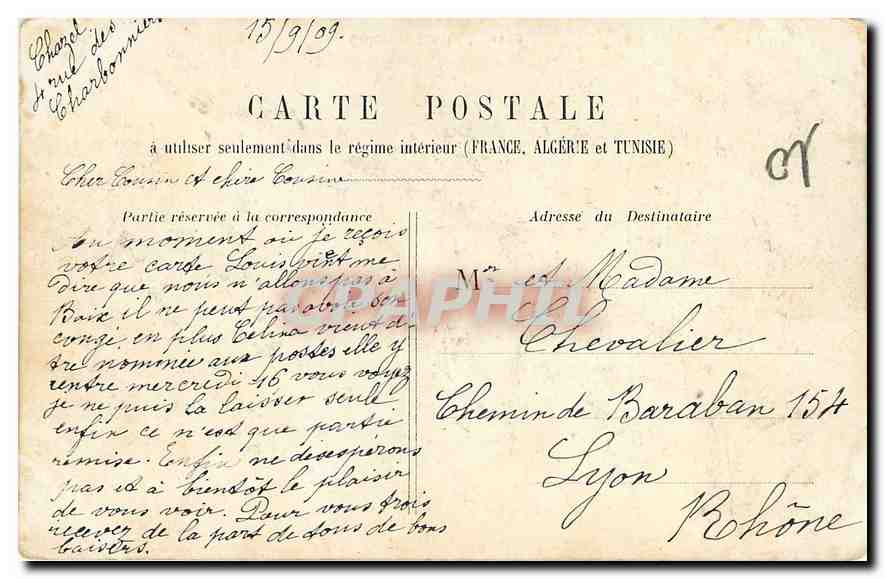 Chazel
4 rue des
Charbonniers
15/9/09.
CARTE POSTALE
à utiliser seulement dans le régime intérieur (FRANCE, ALGÉRIE et TUNISIE)
Cher Cousin et chère Cousine
Partie réservée à la correspondance
Au moment où je reçois
votre carte Louis vint me
dire que nous n'allons pas à
Baix il ne peut pas avoir son
congé, en plus Célina vient d'ê-
tre nommée aux postes elle y
rentre mercredi 16 vous voyez
je ne puis la laisser seule
enfin ce n'est que partie
remise. Enfin ne desespérons
pas et à bientôt le plaisir
de vous voir. Pour vous trois
recevez de la part de tous de bons
baisers.
Adresse du Destinataire
Mr et Madame
Chevalier
Chemin de Baraban 154
Lyon
Rhône
CRAPHIL